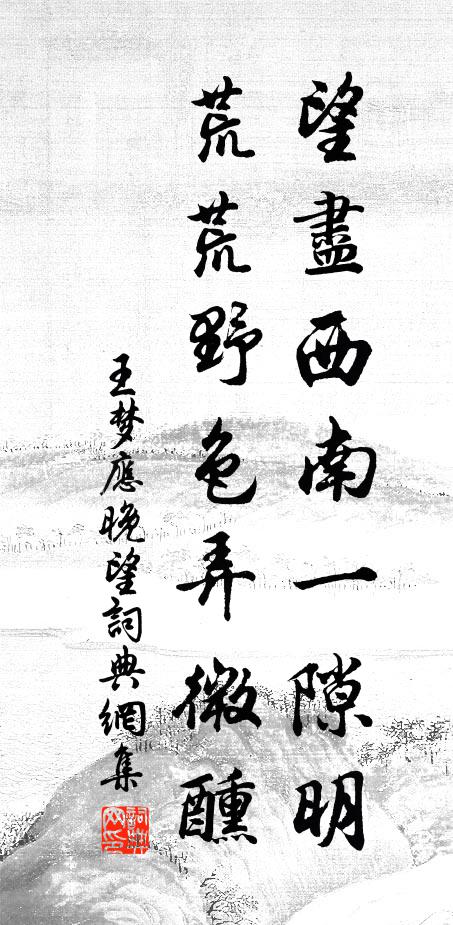 望盡西南一隙明
荒荒野色弄微醺
王梦應晚望詞典網集
詞典網印